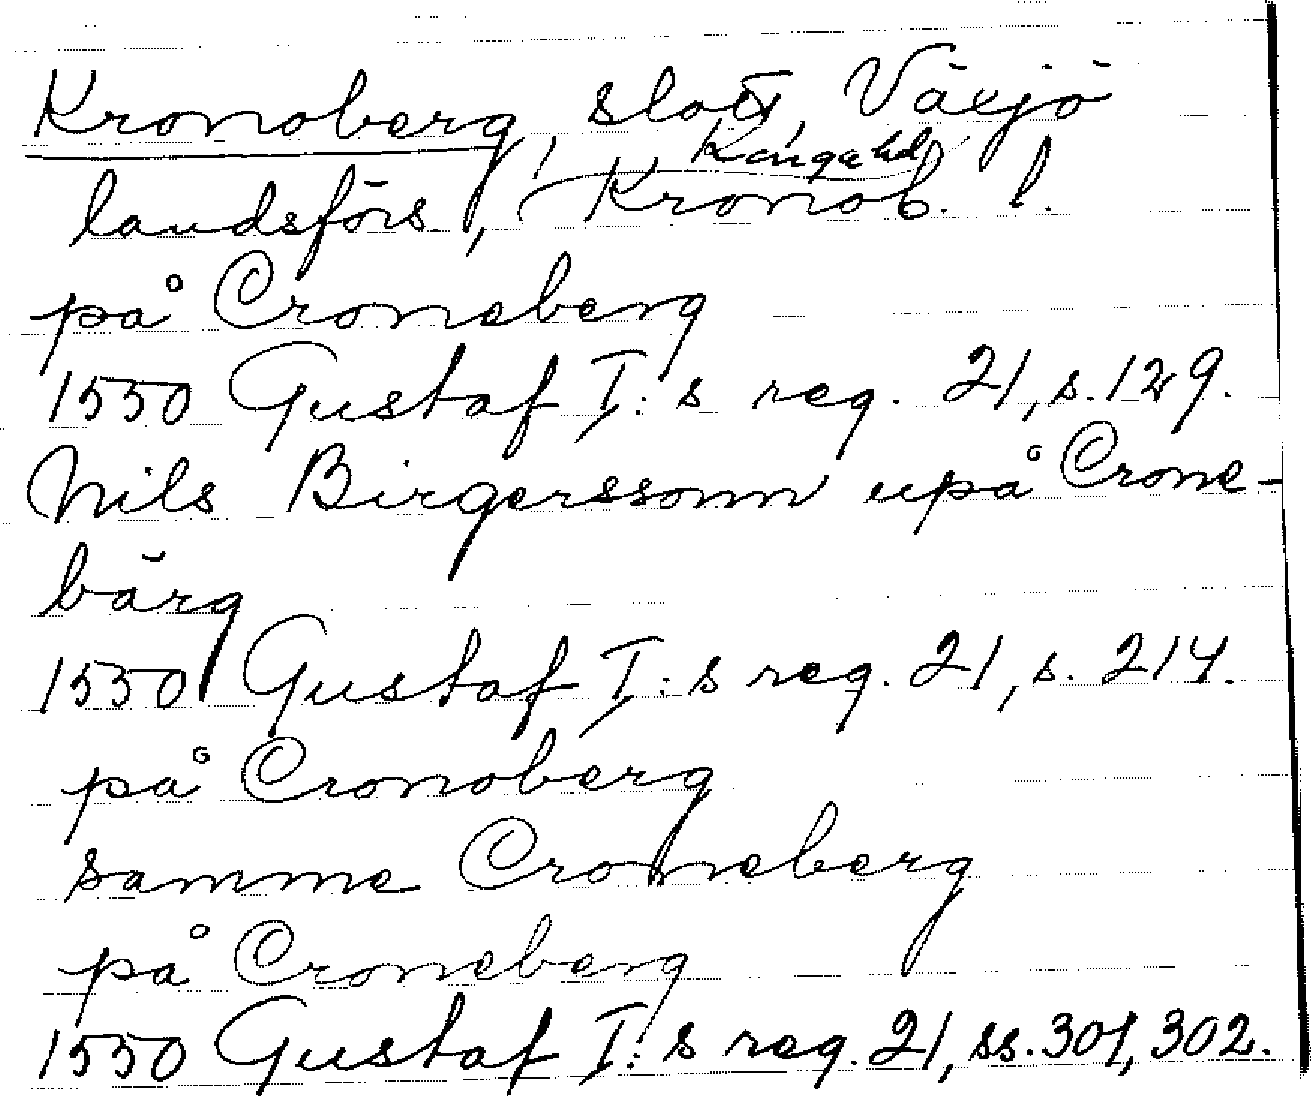 Kronoberg, slott, Växjö
Kinga hd
landsförs, Kronob. l.
på Croneberg
1550 Gustaf I:s reg. 21, s. 129.
Nils Birgerssonn upå Crone-
bärg
1550 Gustaf I:s reg. 21, s. 214.
på Cronoberg
samme Croneberg
på Croneberg
1550 Gustaf I:s reg. 21, ss. 301, 302.